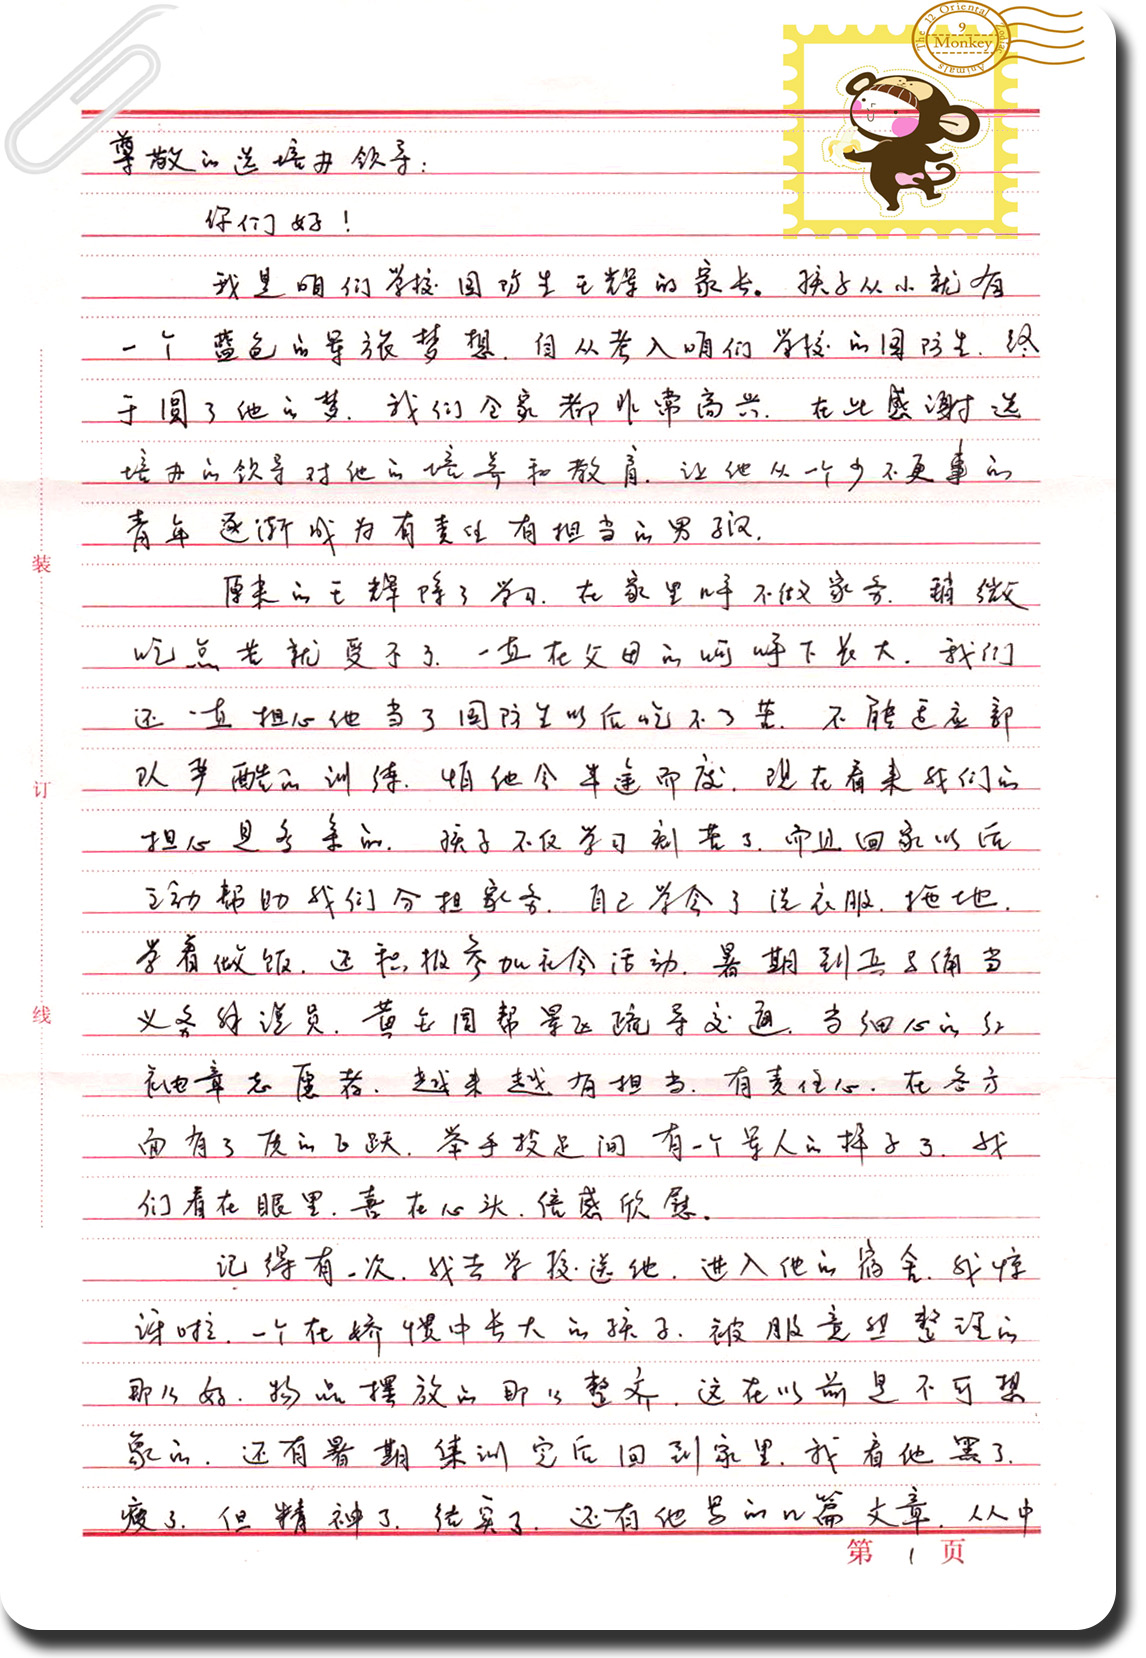 The 12 Oriental Zodiac Animals
9
Monkey
尊敬的选培办领导:
你们好!
我是咱们学校国防生王辉的家长。孩子从小就有
一个蓝色的军旅梦想,自从考入咱们学校的国防生,终
于圆了他的梦,我们全家都非常高兴,在此感谢选
培办的领导对他的培养和教育,让他从一个少不更事的
青年逐渐成为有责任有担当的男子汉,
原来的王辉除了学习,在家里几乎不做家务,稍微
吃点苦就受不了,一直在父母的呵呼下长大,我们
还一直担心他当了国防生以后吃不了苦,不能适应部
队严酷的训练,怕他会半途而废,现在看来我们的
担心是多余的,孩子不仅学习刻苦了,而且回家以后
主动帮助我们分担家务,自己学会了洗衣服,拖地,
学着做饭,还积极参加社会活动,暑期到兵马俑当
义务讲说员,黄金周帮景区疏导交通,当细心的红
袖章志愿者,越来越有担当,有责任心,在各方
面有了质的飞跃,举手投足间有一个军人的样子了,我
们看在眼里,喜在心头,倍感欣慰。
记得有一次,我去学校送他,进入他的宿舍,我惊
讶啦,一个在娇惯中长大的孩子,被服竟然整理的
那么好,物品摆放的那么整齐,这在以前是不可想
象的,还有暑期集训完后回到家里,我看他黑了,
瘦了,但精神了,结实了,还有他写的几篇文章,从中
装
订
线
第 1 页